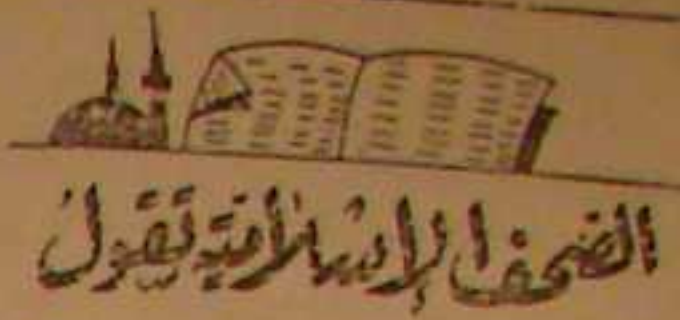 الصحف الإسلامية تقول